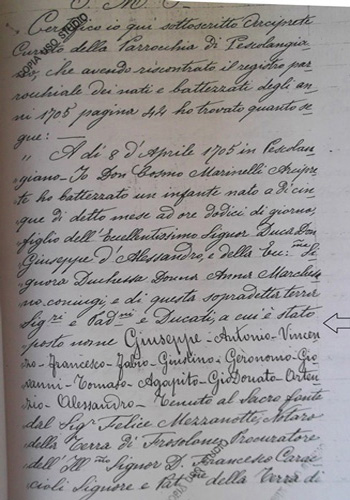 J. M. J.
Certifico io qui sottoscritto Arciprete
Curato della Parrocchia di Pescolangia-
no, che avendo riscontrato il registro par-
rochiale dei nati e battezzati degli an-
ni 1705 pagina 42 ho trovato quanto se-
gue: —
" A dì 8 d'Aprile 1705 in Pescolan-
giano - Io Don Cosmo Marinelli Arcipre-
te ho battezzato un infante nato a di cin-
que di detto mese ad ore dodici di giorno,
figlio dell'Eccellentissimo Signor Duca Don
Giuseppe d'Alessandro, e della Ec:ma Si-
gnora Duchessa Donna Anna Marchesa-
no, coniugi, e di questa sopradetta terra
Sigri e Padni e Ducati, a cui è stato
posto nome Giuseppe - Antonio - Vincen
zo - Francesco - Fabio - Giustino - Geronomo - Gio
vanni - Tomaso - Agapito - Gio Donato - Arten
zio - Alessandro - Tenuto al Sacro fonte
dal Sigr Felice Mezzanotte, Notaro
della Terra di Frosolone, Procuratore
dell'Ill.mo Signor D. Francesco Carac
cioli Signore e Pat.ne della Terra di
COPIA USO STUDIO